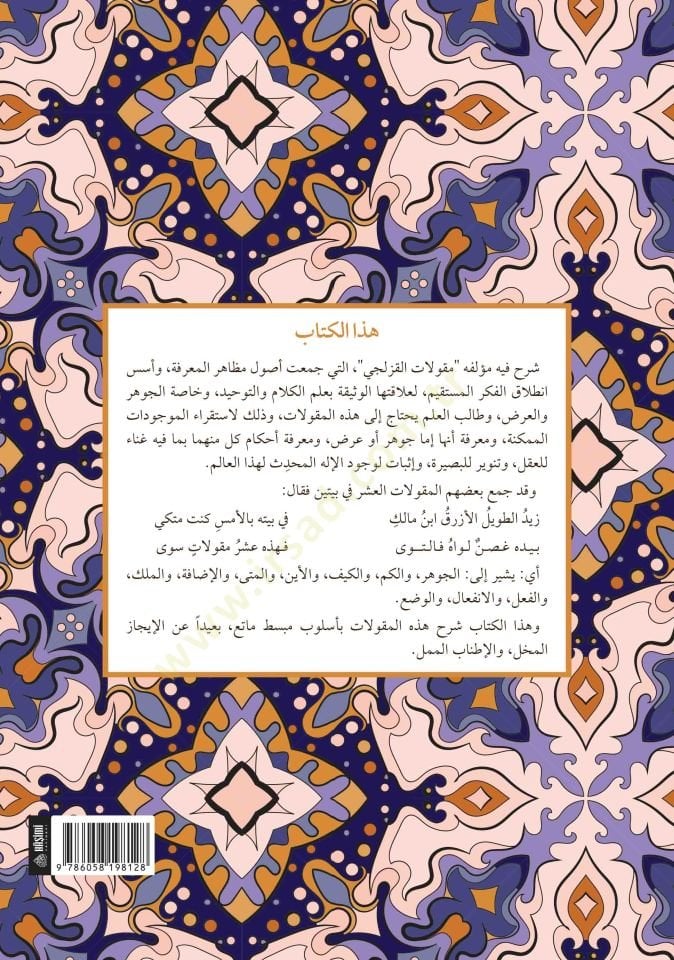 هذا الكتاب
شرح فيه مؤلفه "مقولات القزلجي"، التي جمعت أصول مظاهر المعرفة، وأسس
انطلاق الفكر المستقيم، لعلاقتها الوثيقة بعلم الكلام والتوحيد، وخاصة الجوهر
والعرض، وطالب العلم يحتاج إلى هذه المقولات، وذلك لاستقراء الموجودات
الممكنة، ومعرفة أنها إما جوهر أو عرض، ومعرفة أحكام كل منهما بما فيه غناء
للعقل، وتنوير للبصيرة، وإثبات لوجود الإله المحدِث لهذا العالم.
وقد جمع بعضهم المقولات العشر في بيتين فقال:
زيدُ الطويلُ الأزرقُ ابنُ مالكِ في بيته بالأمسِ كنت متكي
بيده غصنٌ لواهُ فالتوى فهذه عشرُ مقولاتٍ سوى
أي: يشير إلى: الجوهر، والكم، والكيف، والأين، والمتى، والإضافة، والملك،
والفعل، والانفعال، والوضع.
وهذا الكتاب شرح هذه المقولات بأسلوب مبسط ماتع، بعيداً عن الإيجاز
المخل، والإطناب الممل.
HAŞİMİ
9 786058 198128